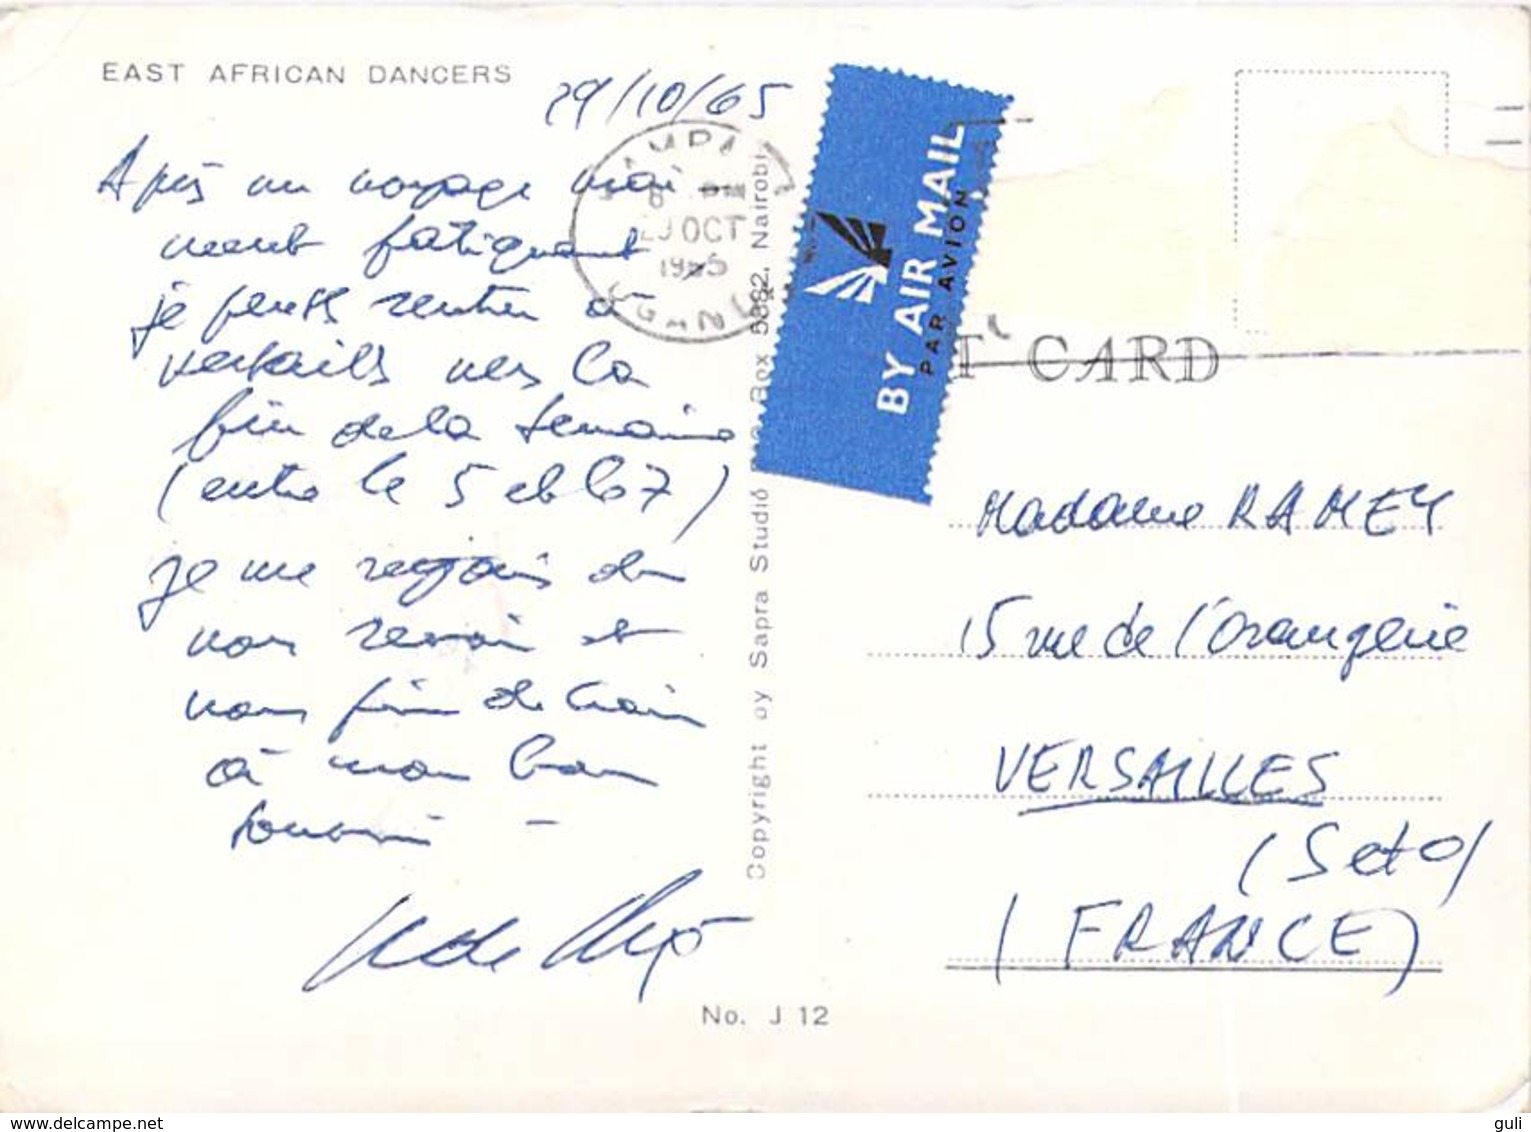 EAST AFRICAN DANCERS
29/10/65
Après un voyage vrai-
ment fatiguant
je pense rentrer à
Versailles vers la
fin de la semaine
(entre le 5 et le 7)
je me réjouis de
vous revoir et
vous prie de croire
à mon bon
souvenir -
KAMPALA
29 OCT
1965
UGANDA
Copyright by Sapra Studio Box 5882, Nairobi
BY AIR MAIL
PAR AVION
T CARD
Madame RAMEY
15 rue de l'orangerie
VERSAILLES
(S et O)
(FRANCE)
No. J 12
guli